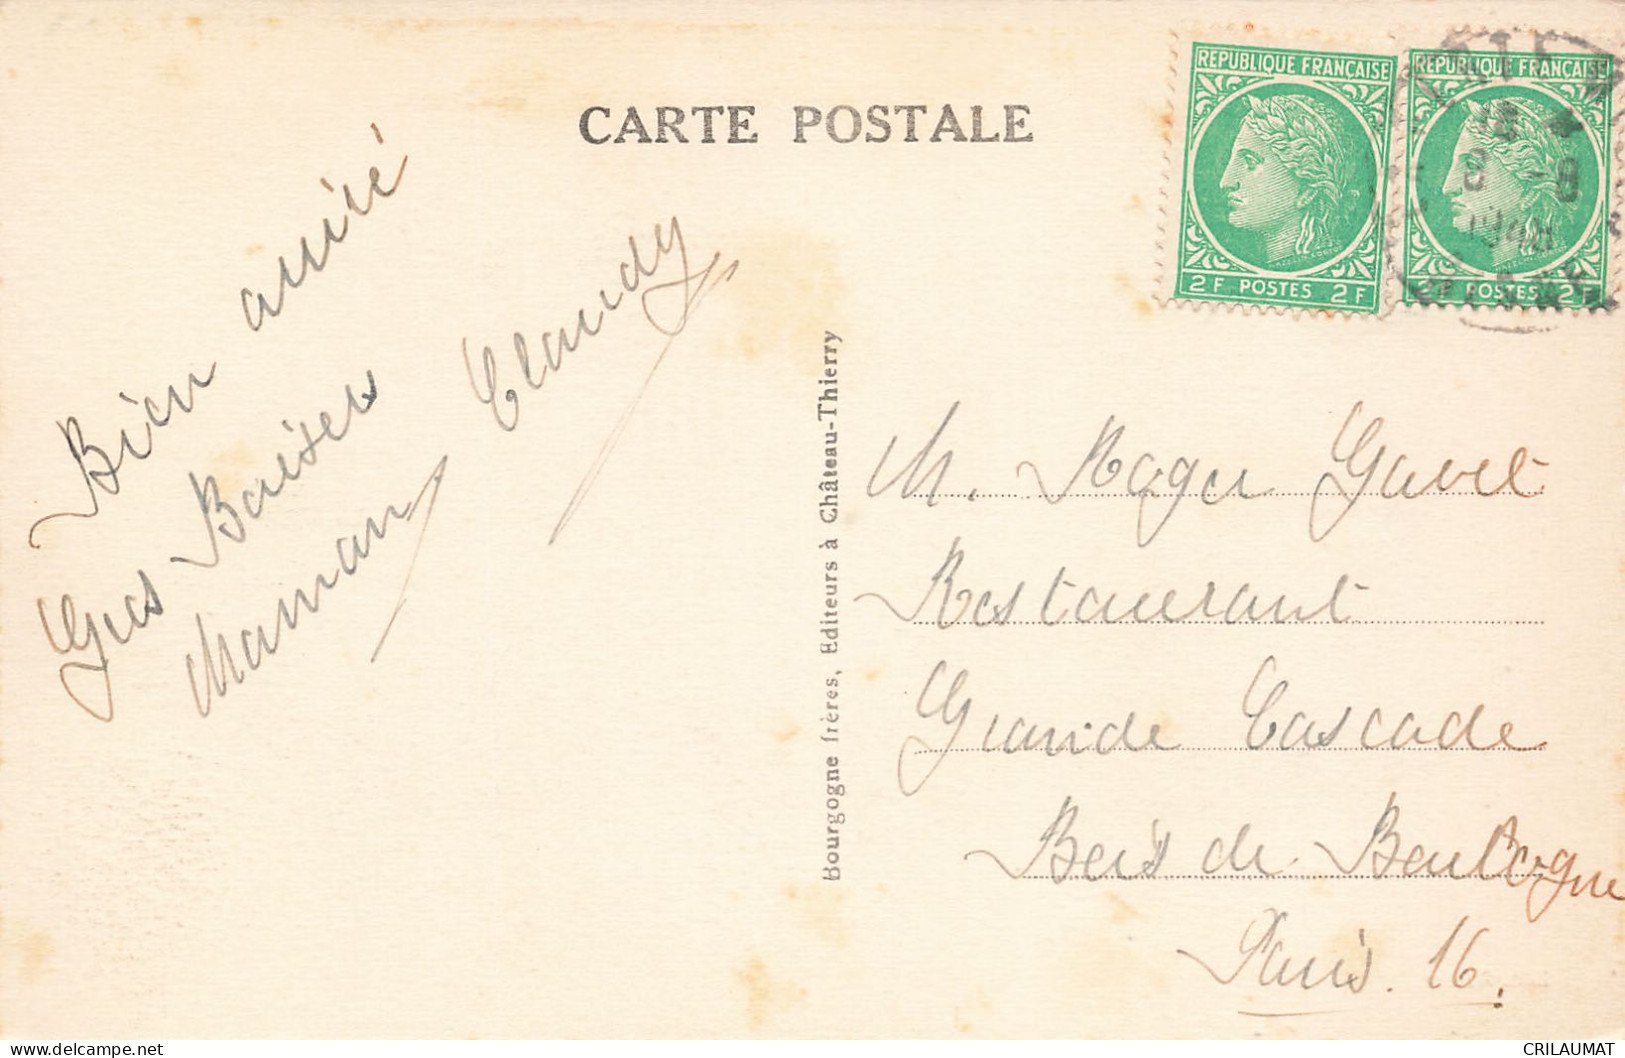 CARTE POSTALE
REPUBLIQUE FRANÇAISE
2 F POSTES 2 F
REPUBLIQUE FRANÇAISE
2 F POSTES 2 F
8 -8
1948
Bien arrivé
Gros Baisers
Maman Claudy
Bourgogne frères, Editeurs à Château-Thierry
M. Roger Gavel
Restaurant
Grande Cascade
Bois de Boulogne
Paris. 16.
delcampe.net
CRILAUMAT